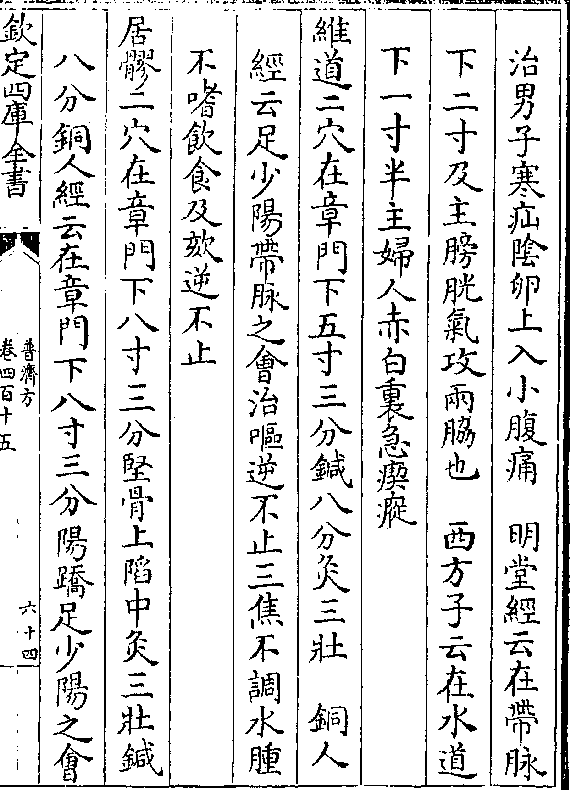 治男子寒疝陰卵上入小腹痛　明堂經云在帶脉
下二寸及主膀胱氣攻兩脇也　西方子云在水道
下一寸半主婦人赤白裏急瘈瘲
維道二穴在章門下五寸三分鍼八分灸三壯　銅人
經云足少陽帶脉之會治嘔逆不止三焦不調水腫
不嗜飲食及欬逆不止
居髎二穴在章門下八寸三分堅骨上陷中灸三壯鍼
八分銅人經云在章門下八寸三分陽蹻足少陽之會
欽定四庫全書
普濟方
卷四百十五
六十四